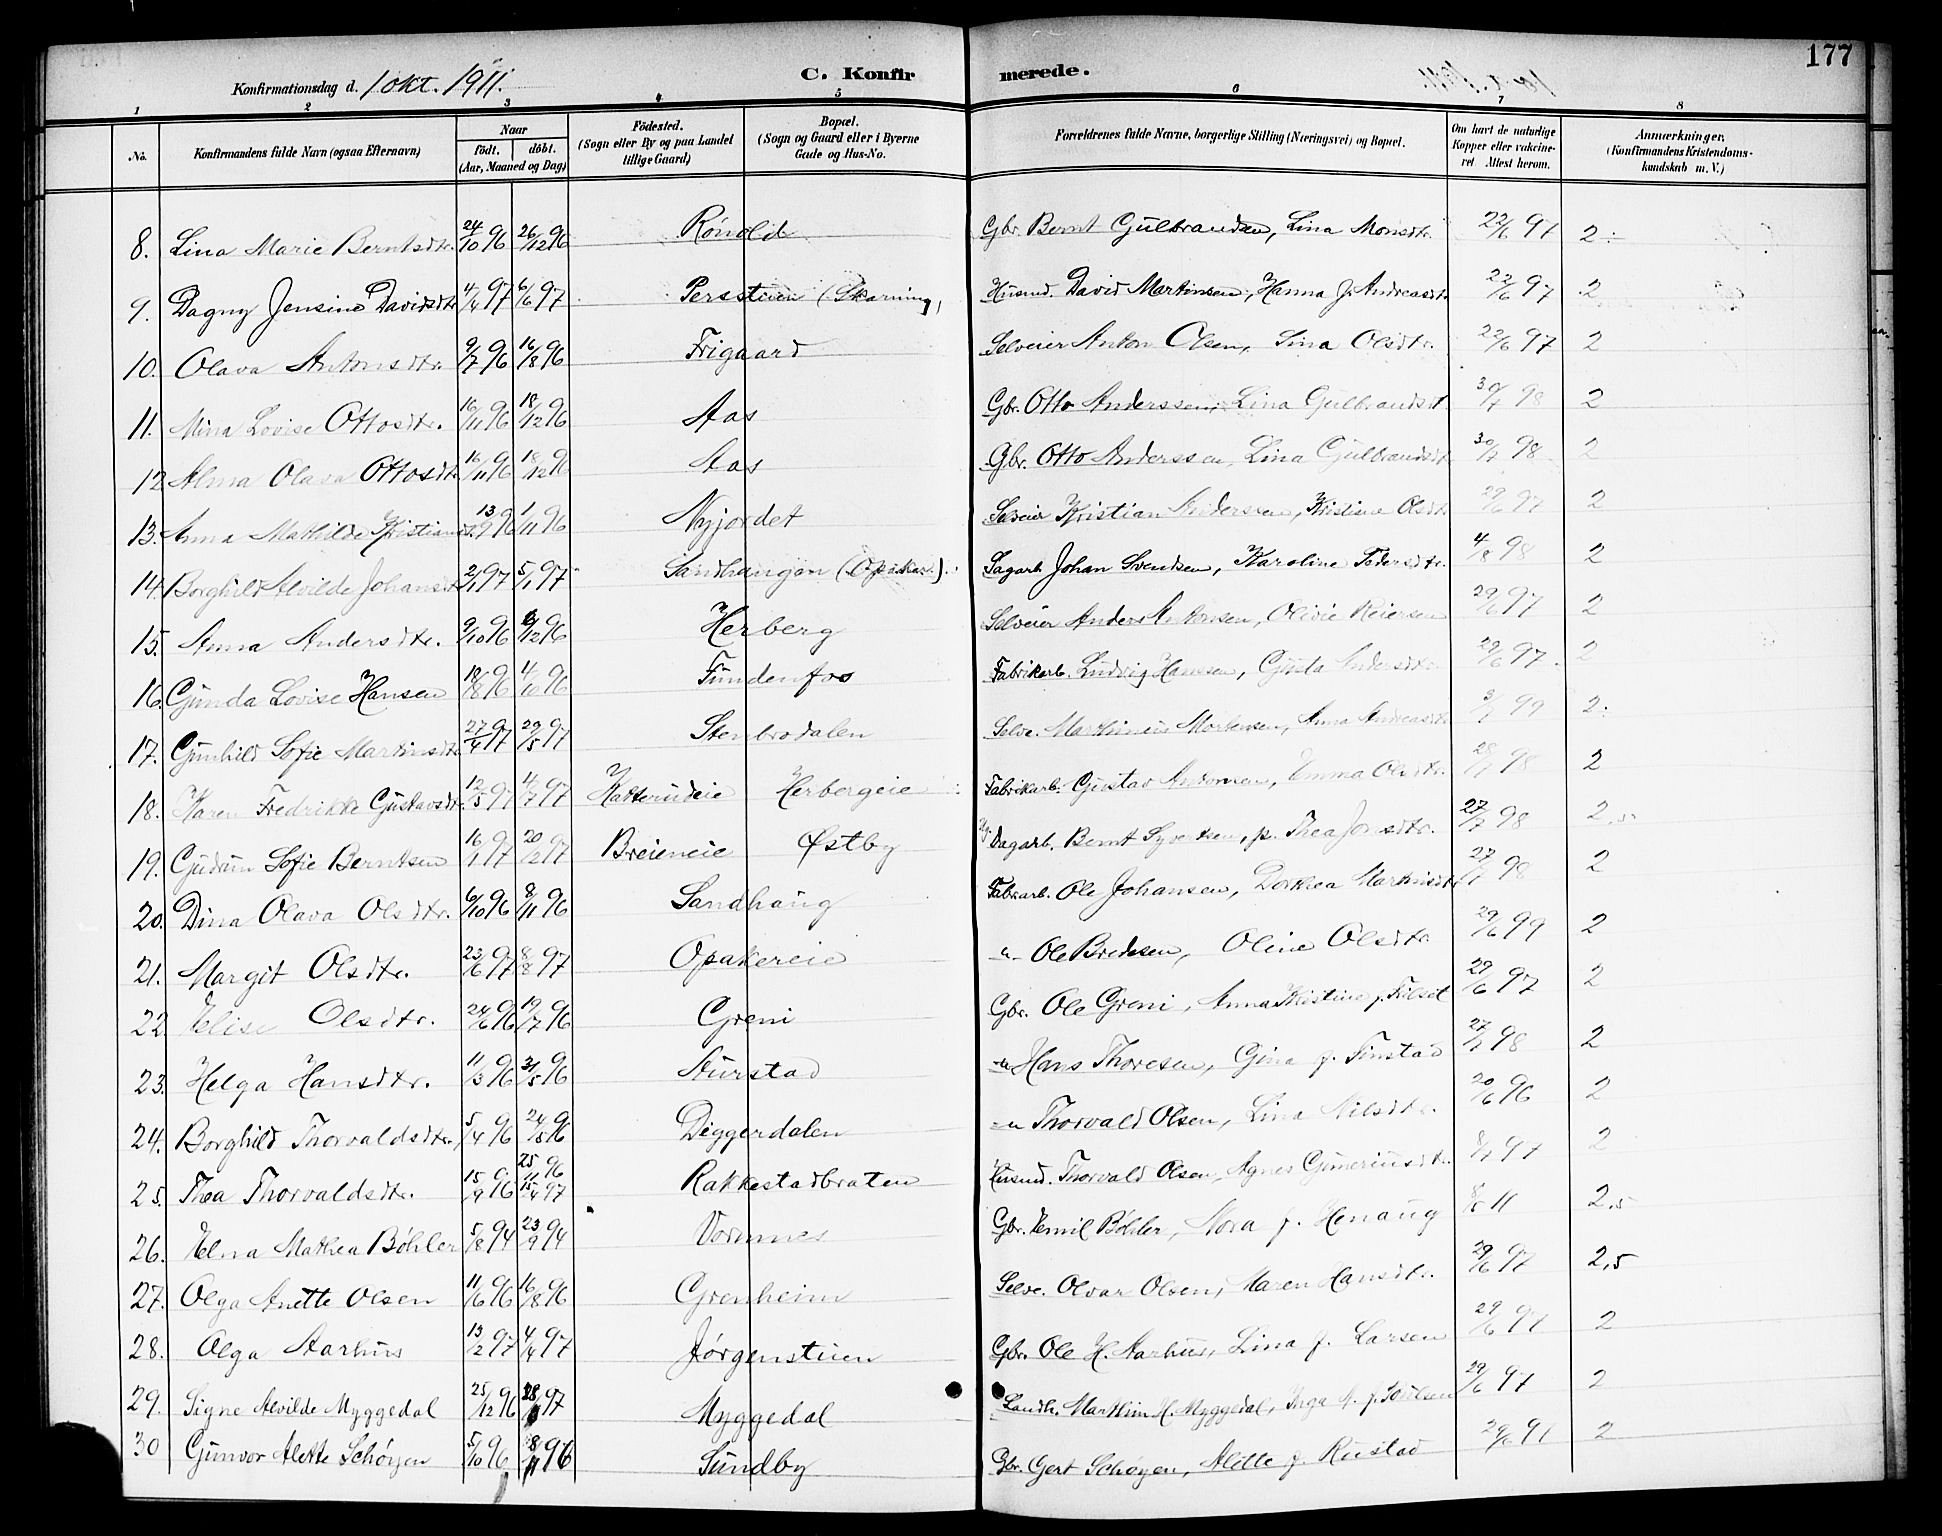 177
Konfirmationsdag d. 1 okt. 1911.
C. Konfirmerede.
1 2 3 4 5 6 7 8
No.
Konfirmandens fulde Navn (ogsaa Efternavn)
Naar
født. døbt.
(Aar, Maaned og Dag)
Fødested.
(Sogn eller By og paa Landet
tillige Gaard)
Bopæl.
(Sogn og Gaard eller i Byerne
Gade og Hus-No.
Forældrenes fulde Navne, borgerlige Stilling (Næringsvei) og Bopæl.
Om havt de naturlige
Kopper eller vakcine-
ret. Attest herom.
Anmærkninger.
(Konfirmandens Kristendoms-
kundskab m. V.)
8. Lina Marie Berntsdtr. 24/10 96 26/12 96 Rönold Gbr. Bernt Gulbrandsen, Lina Monsdtr. 22/6 97 2 ÷
9. Dagny Jensine Davidsdtr 4/4 97 6/6 97 Persstuen (Skarning) Husmd. David Martinsen, Hanna J. Andreasdtr 22/6 97 2
10. Olava Antonsdtr. 9/7 96 16/8 96 Frigaard Selveier Anton Olsen, Lina Olsdtr. 22/6 97 2
11. Mina Lovise Ottosdtr. 16/11 96 18/12 96 Aas Gbr. Otto Anderssen, Lina Gulbrandsdt. 30/7 98 2
12 Alma Olava Ottosdtr 16/11 96 18/12 96 Aas Gbr. Otto Anderssen, Lina Gulbrandsdt 30/7 98 2
13. Anna Mathilde Kristiansdt. 13/9 96 1/11 96 Nyjordet Selveier Kristian Anderssen, Kristine Olsdtr 29/6 97 2
14. Borghild Alvilde Johansdtr 2/1 97 5/1 97 Sandhaugen (Opaker). Sagarb. Johan Svendsen, Karoline Pedersdtr. 4/8 98 2
15. Anna Andersdtr. 9/10 96 6/12 96 Herberg Selveier Anders Antonsen, Olivie Reiersen 29/6 97 2
16. Gunda Lovise Hansen 18/8 96 4/10 96 Fundenfos Fabrikarb. Ludvig Hanssen, Gusta Andersdtr. 29/6 97. 2
17. Gunhild Sofie Martinsdtr 27/4 97 29/5 97 Stenbrodalen Selve. Marthinius Mortensen, Anna Andreasdtr 3/7 99 2 ÷
18. Karen Fredrikke Gustavsdtr 12/5 97 4/7 97 Katterudeie Herbergeie Fabrikarb. Gustav Antonsen, Emma Olsdtr. 28/7 98 2
19. Gudrun Sofie Berntsen 16/1 97 20/2 97 Breieneie Østby Dagarb. Bernt Syvertsen, p. Thea Jonsdtr. 27/7 98 2,5
20. Dina Olava Olsdtr. 6/10 96 8/11 96 Sandhaug Fabrarb. Ole Johansen, Dorthea Martinsdtr 27/7 98 2
21. Margit Olsdtr. 23/6 97 8/8 97 Opakereie -"- Ole Bredesen, Oline Olsdtr 29/6 99 2
22 Elise Olsdtr. 24/6 96 19/7 96 Greni Gbr. Ole Greni, Anna Kristine f. Filset 29/6 97 2
23. Helga Hansdtr. 11/3 96 31/5 96 Aurstad -"- Hans Thoresen, Gina f. Finstad 27/7 98 2
24. Borghild Thorvaldsdtr. 5/4 96 24/5 96 Diggerdalen -"- Thorvald Olsen, Lina Nilsdtr. 20/6 96 2
25. Thea Thorvaldsdtr. 15/9 96 25/11 96 15/4 97 Rakkestadbraten Husmd. Thorvald Olsen, Agnes Gumeriusdtr. 8/7 97 2
26. Elna Mathea Böhler 5/8 94 23/9 94 Vormnes Gbr. Emil Böhler, Nora f. Henaug 8/8 11 2,5
27. Olga Anette Olsen 11/6 96 16/8 96 Grenheim Selve. Olvar Olsen, Maren Hansdtr. 29/6 97 2,5
28. Olga Aarhus 13/2 97 4/4 97 Jörgenstuen Gbr. Ole H. Aarhus, Lina f. Larsen 29/6 97 2
29. Signe Alvilde Myggedal 25/12 96 28/ 97 Myggedal Landh. Marthin H. Myggedal, Inga A. f. 29/6 97 2
30 Gunvor Alette Schöyen 5/10 96 8/11 96 Sundby Gbr. Gert Schöyen, Alette f. Rustad 29/6 97 2